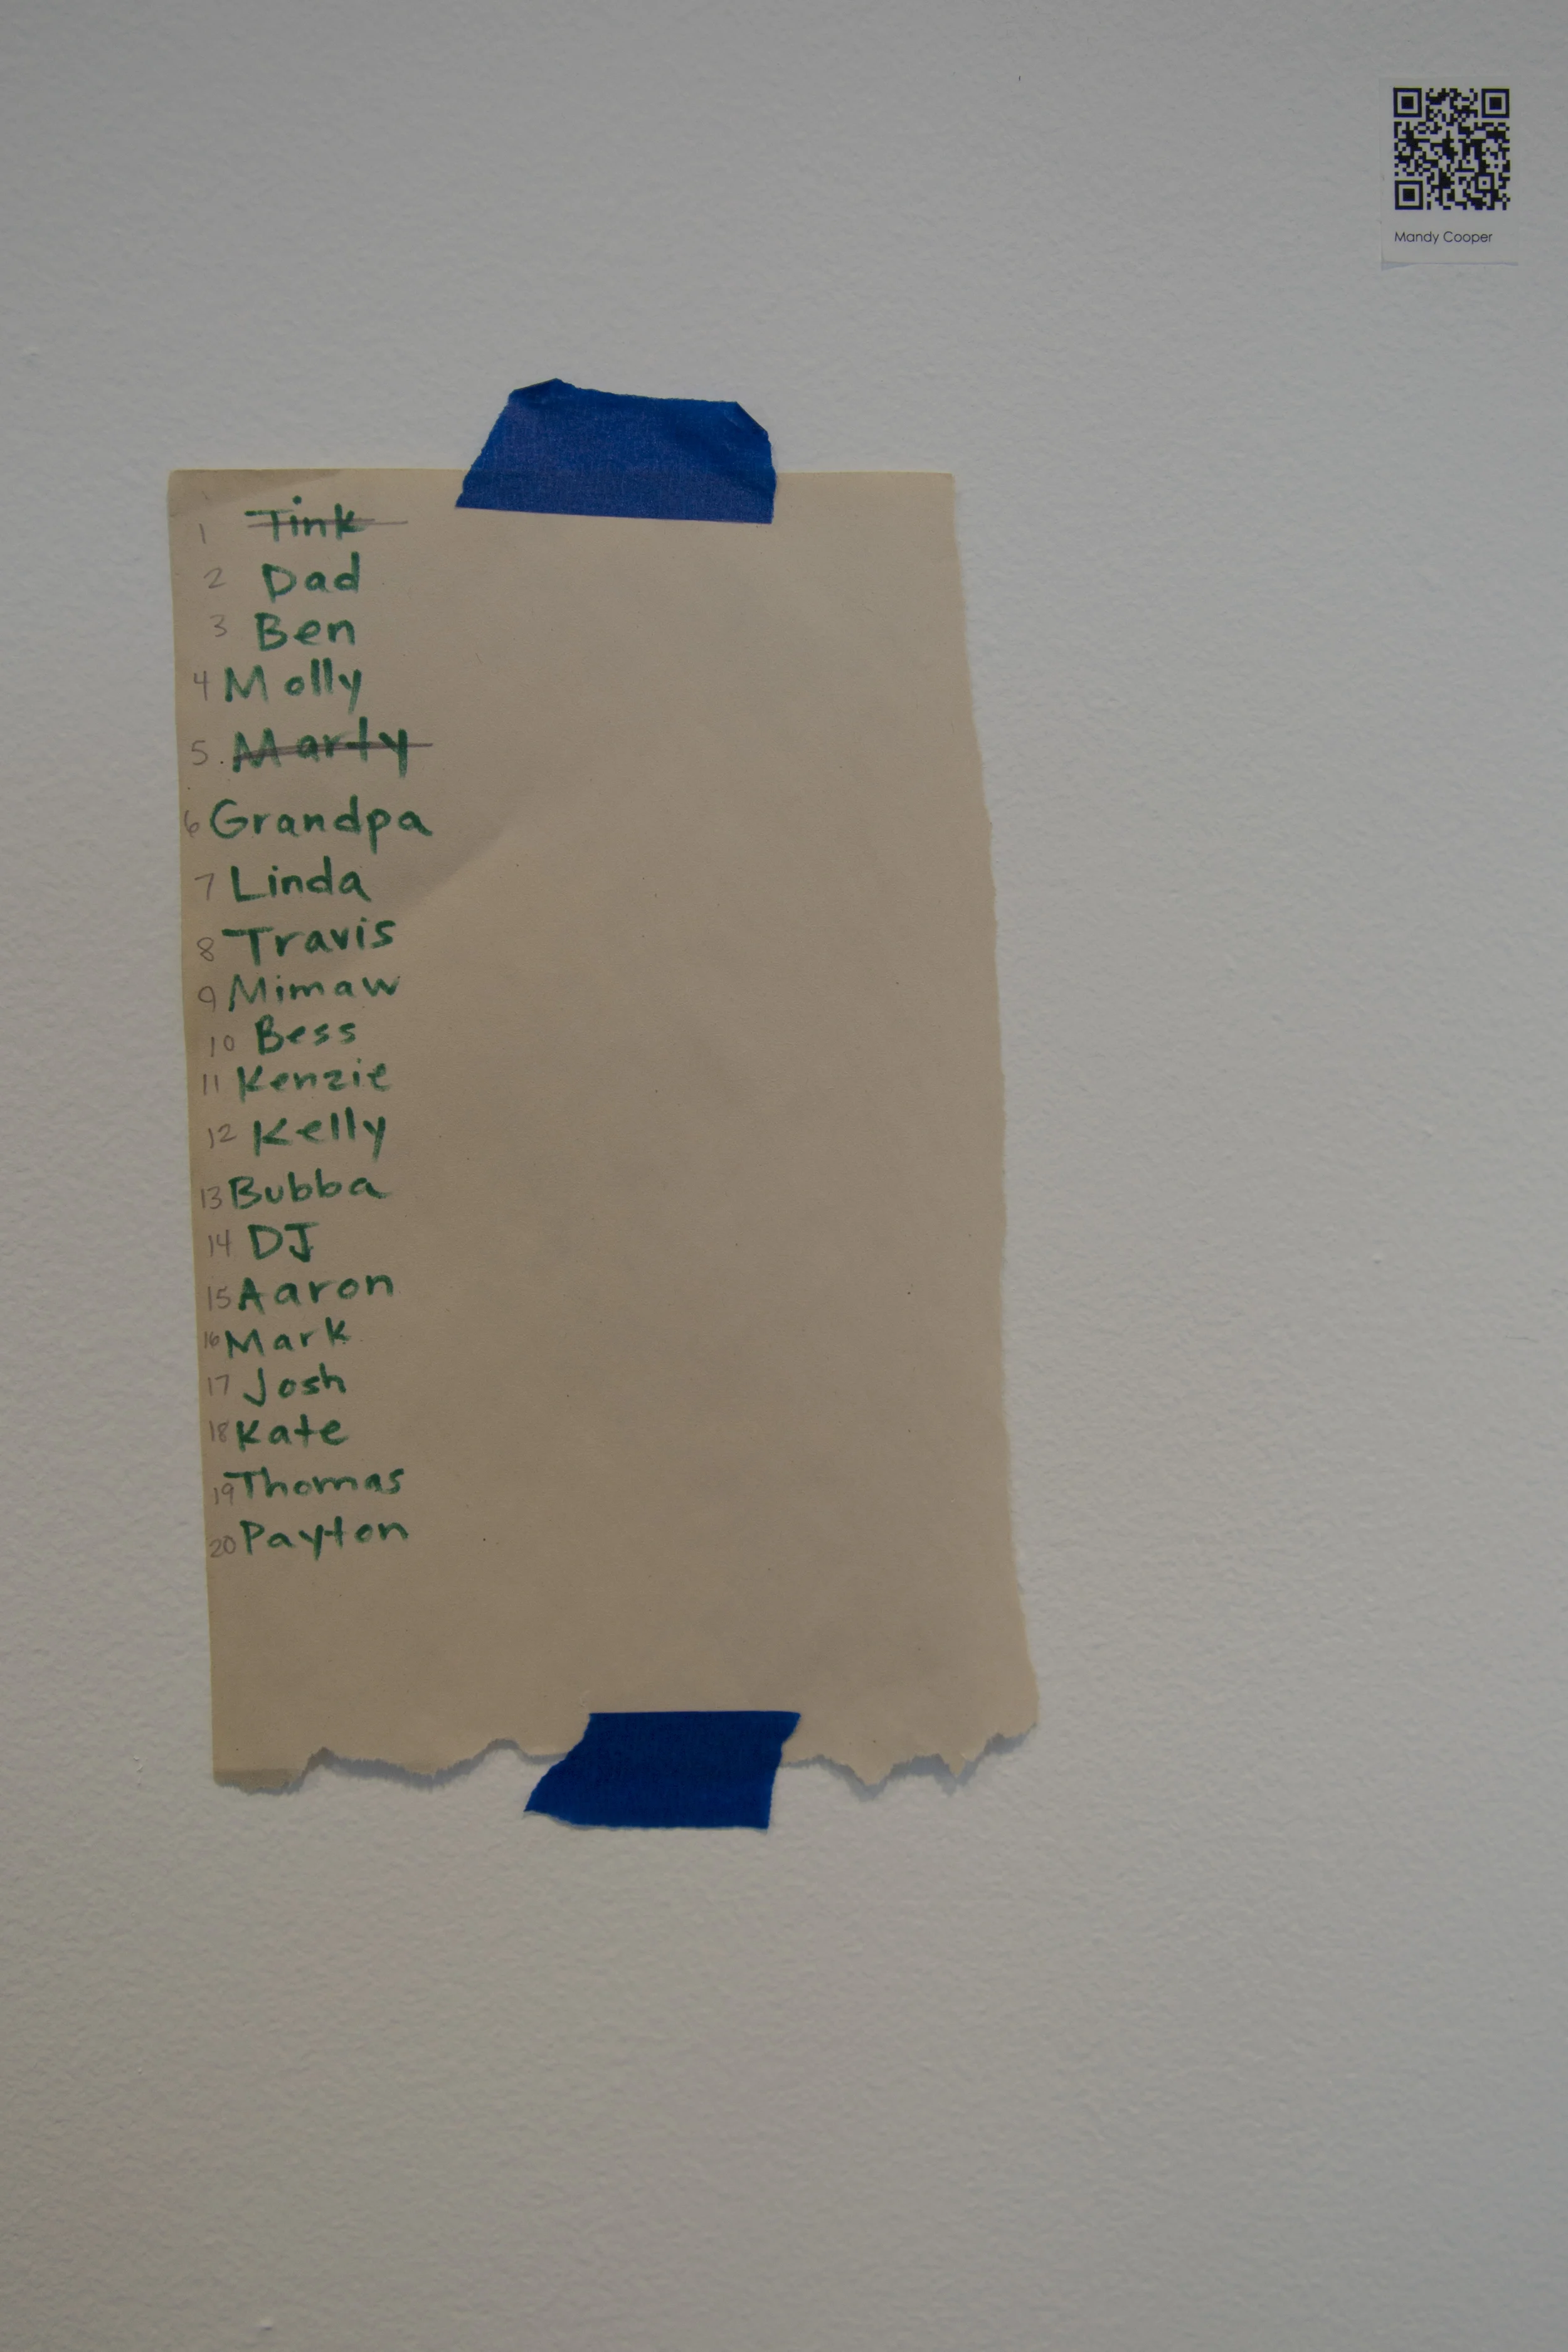 Mandy Cooper
1 Tink
2 Dad
3 Ben
4 Molly
5. Marty
6 Grandpa
7 Linda
8 Travis
9 Mimaw
10 Bess
11 Kenzie
12 Kelly
13 Bubba
14 DJ
15 Aaron
16 Mark
17 Josh
18 Kate
19 Thomas
20 Payton